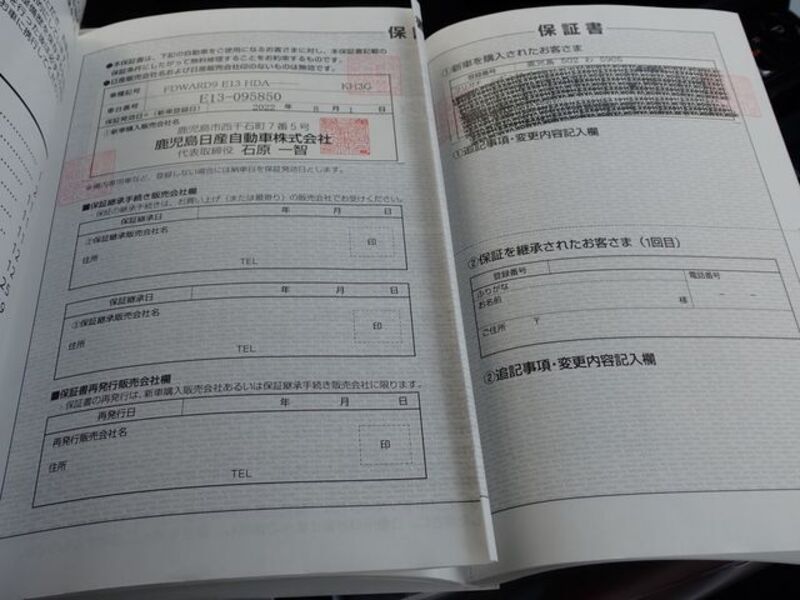 保証書
●本保証書は、下記の自動車をご使用になるお客さまに対し、本保証書記載の
保証条件にしたがって無料修理することをお約束するものです。
●日産販売会社名および日産販売会社印のないものは無効です。
車種記号 FDWARD9 E13 HDA KH3G
車台番号 E13-095850
保証発効日=(新車登録日) 2022 年 8 月 1 日
①新車購入販売会社名
鹿児島市西千石町7番5号
鹿児島日産自動車株式会社
代表取締役 石原 一智
※構内専用車など、登録しない場合には納車日を保証発効日とします。
■保証継承手続き販売会社欄
・保証の継承手続きは、お買い上げ(または最寄り)の販売会社でお受けください。
保証継承日 年 月 日
②保証継承販売会社名
印
住所
TEL
保証継承日 年 月 日
③保証継承販売会社名
印
住所
TEL
■保証書再発行販売会社欄
・保証書の再発行は、新車購入販売会社あるいは保証継承手続き販売会社に限ります。
再発行日 年 月 日
再発行販売会社名
印
住所
TEL
保証書
①新車を購入されたお客さま
登録番号 鹿児島 502 わ 6905
①追記事項・変更内容記入欄
②保証を継承されたお客さま(1回目)
登録番号
ふりがな
お名前 様
電話番号
ー ー
ご住所 〒
②追記事項・変更内容記入欄